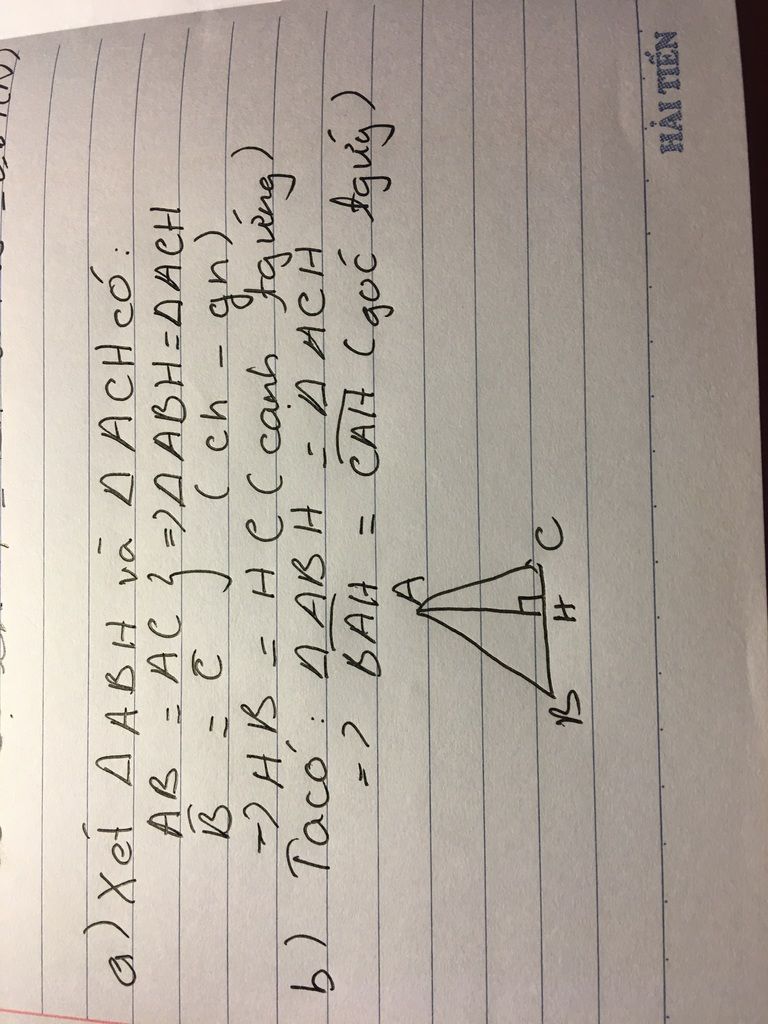 a) Xét ΔABH và ΔACH có:
AB = AC } => ΔABH = ΔACH
B̅ = C̅ (ch - gn)
=> HB = HC (cạnh tg ứng)
b) Ta có: ΔABH = ΔACH
=> B̅A̅H̅ = C̅A̅H̅ (góc tg ứng)
A
B H C
HẢI TIẾN